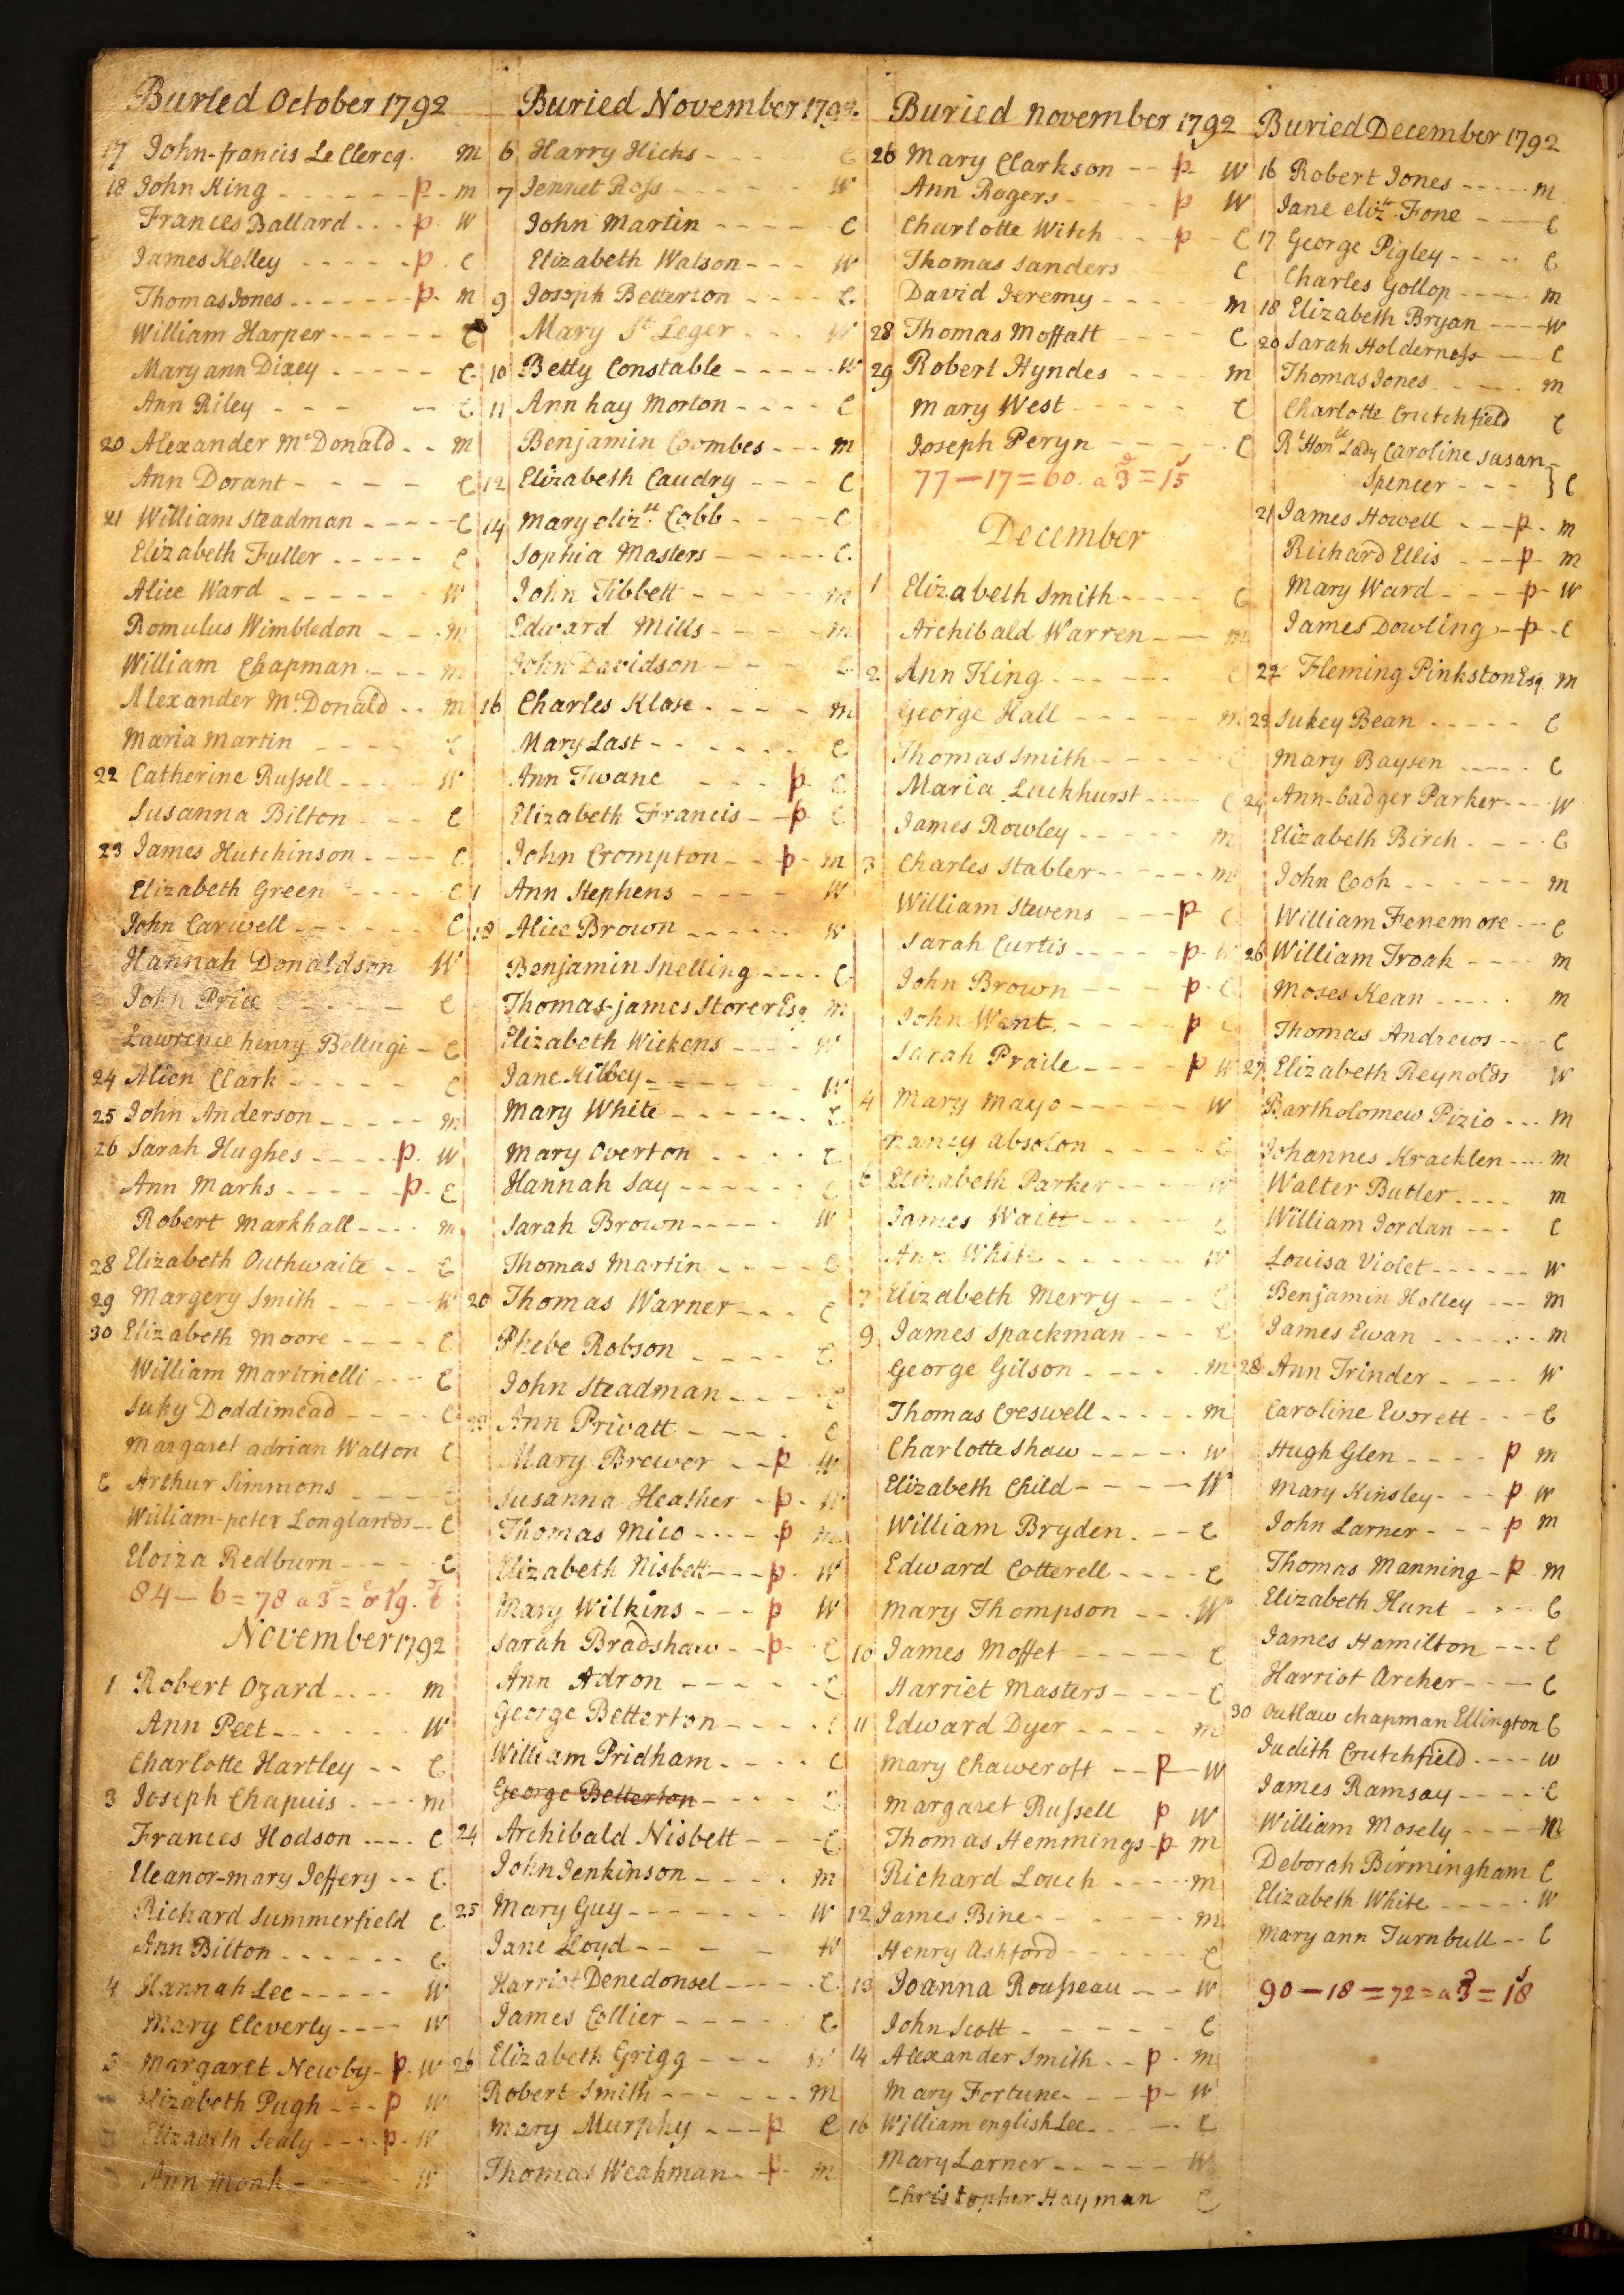 Buried October 1792
17 John-francis Le Clercq. m
18 John King - - - - - - p - m
Frances Ballard - - - p - W
James Kelley - - - - - p - C
Thomas Jones - - - - - - p - m
William Harper - - - - - C
Mary ann Dixey - - - - - C
Ann Riley - - - - - C
20 Alexander McDonald - - m
Ann Dorant - - - - C
21 William Steadman - - - - C
Elizabeth Fuller - - - - - C
Alice Ward - - - - - - W
Romulus Wimbledon - - - m
William Chapman - - - m
Alexander McDonald - - m
Maria Martin - - - - C
22 Catherine Russell - - - - W
Susanna Bilton - - - C
23 James Hutchinson - - - - C
Elizabeth Green - - - - C
John Carwell - - - - - - C
Hannah Donaldson W
John Price - - - - - C
Lawrence henry Bellugi - C
24 Alien Clark - - - - - C
25 John Anderson - - - - - m
26 Sarah Hughes - - - - p - W
Ann Marks - - - - - p - C
Robert Markhall - - - - m
28 Elizabeth Outhwaite - - C
29 Margery Smith - - - - - W
30 Elizabeth Moore - - - - C
William Martinelli - - - C
Suky Doddimead - - - - C
Margaret adrian Walton C
C Arthur Simmons - - - - C
William-peter Longlands - - C
Eloiza Redburn - - - - C
84 - 6 = 78 a 3 = 19.
November 1792
1 Robert Ozard - - - - m
Ann Peet - - - - - - W
Charlotte Hartley - - C
3 Joseph Chapuis - - - - m
Frances Hodson - - - - C
Eleanor-mary Jeffery - - C
Richard Summerfield C
Ann Bilton - - - - - - C
4 Hannah Lee - - - - - W
Mary Cleverly - - - - W
5 Margaret Newby - p - W
Elizabeth Pugh - - - p W
Elizabeth Sealy - - - - p - W
Ann Monk - - - - - - W
Buried November 1792.
6 Harry Hicks - - - C
7 Jennet Ross - - - - - - W
John Martin - - - - - - C
Elizabeth Watson - - - W
9 Joseph Betterton - - - - C
Mary St Leger - - - W
10 Betty Constable - - - - - W
11 Ann hay Morton - - - - C
Benjamin Coombes - - - m
12 Elizabeth Caudry - - - C
14 Mary elizth Cobb - - - - C
Sophia Masters - - - - - C
John Tibbett - - - - - - m
Edward Mills - - - - - m
John Davidson - - - - C
16 Charles Klose - - - - m
Mary Last - - - - - - C
Ann Twane - - - p - C
Elizabeth Francis - - p - C
John Crompton - - p - m
Ann Stephens - - - - W
18 Alice Brown - - - - - - W
Benjamin Snelling - - - - C
Thomas-james Storer Esq. m
Elizabeth Wickens - - - - W
Jane Kilbey - - - - - - - W
Mary White - - - - - - - C
Mary Overton - - - - - C
Hannah Say - - - - - - C
Sarah Brown - - - - - W
Thomas Martin - - - - - C
20 Thomas Warner - - - C
Phebe Robson - - - - C
John Steadman - - - - C
Ann Privatt - - - - C
Mary Brewer - - p W
Susanna Heather - p - W
Thomas Mico - - - - p m
Elizabeth Nisbett - - - p - W
Mary Wilkins - - - p W
Sarah Bradshaw - - p - C
Ann Adron - - - - - C
George Betterton - - - - C
William Pridham - - - - C
George Betterton - - - - C
24 Archibald Nisbett - - - C
John Jenkinson - - - - m
25 Mary Guy - - - - - - - W
Jane Lloyd - - - - W
Harriot Denedonsel - - - - C
James Collier - - - - - C
26 Elizabeth Grigg - - - W
Robert Smith - - - - - - m
Mary Murphy - - - p C
Thomas Weakman - p m
Buried november 1792
26 Mary Clarkson - - p - W
Ann Rogers - - - - - p W
Charlotte Witch - - - p - C
Thomas Sanders C
David Jeremy - - - - m
28 Thomas Moffatt - - - - C
29 Robert Hyndes - - - - m
Mary West - - - - - - C
Joseph Peryn - - - - - - C
77 - 17 = 60. a 3 = 15
December
1 Elizabeth Smith - - - - - C
Archibald Warren - - - m
2 Ann King - - - - - - C
George Hall - - - - - - m
Thomas Smith - - - - - - C
Maria Luckhurst - - - - C
James Rowley - - - - - m
3 Charles Stabler - - - - - - m
William Stevens - - - p C
Sarah Curtis - - - - - p - W
John Brown - - - - p - C
John Want - - - - - p C
Sarah Praile - - - - - p W
4 Mary Mayo - - - - - - W
nancy absolon - - - - - C
Elizabeth Parker - - - - W
James Waitt - - - - - C
Ann White - - - - - - - W
7 Elizabeth Merry - - - - C
9 James Spackman - - - C
George Gilson - - - - - m
Thomas Creswell - - - - - m
Charlotte Shaw - - - - - W
Elizabeth Child - - - - - W
William Bryden - - - C
Edward Cotterell - - - - C
Mary Thompson - - - W
10 James Moffet - - - - - C
Harriet Masters - - - - C
11 Edward Dyer - - - - m
Mary Chawcroft - - p - W
Margaret Russell p W
Thomas Hemmings - p - m
Richard Louch - - - - m
12 James Bine - - - - - - - m
Henry Ashford - - - - - - C
13 Joanna Rousseau - - - W
John Scott - - - - - - C
14 Alexander Smith - - p - m
Mary Fortune - - - p - W
16 William english Lee - - - - - C
Mary Larner - - - - - - W
Christopher Hayman C
Buried December 1792
16 Robert Jones - - - - - m
Jane elizth Fone - - - C
17 George Pigley - - - - C
Charles Gollop - - - - m
18 Elizabeth Bryan - - - - W
20 Sarah Holderness - - - C
Thomas Jones - - - - - m
Charlotte Crutchfield C
Rt Honble Lady Caroline Susan-
Spencer - - - } C
21 James Howell - - - p - m
Richard Ellis - - - p - m
Mary Ward - - - - p - W
James Dowling - p - C
22 Fleming Pinkston Esq. m
23 Sukey Bean - - - - - C
Mary Baysen - - - - - C
24 Ann-badger Parker - - - W
Elizabeth Birch - - - - C
John Cook - - - - - - - m
William Fenemore - - - C
26 William Froak - - - - m
Moses Kean - - - - - m
Thomas Andrews - - - - C
27 Elizabeth Reynolds W
Bartholomew Pizio - - - m
Johannes Kracklen - - - - m
Walter Butler - - - - m
William Jordan - - - C
Louisa Violet - - - - - - W
Benjamin Holley - - - m
James Ewan - - - - - - - m
28 Ann Trinder - - - - W
Caroline Everett - - - C
Hugh Glen - - - - p m
Mary Kinsley - - - p W
John Larner - - - p m
Thomas Manning - p - m
Elizabeth Hunt - - - C
James Hamilton - - - C
Harriot Archer - - - - C
30 Outlaw chapman Ellington C
Judith Crutchfield - - - - W
James Ramsay - - - - - C
William Mosely - - - - m
Deborah Birmingham C
Elizabeth White - - - - - W
Mary ann Turnbull - - C
90 - 18 = 72 = a 3 = 18